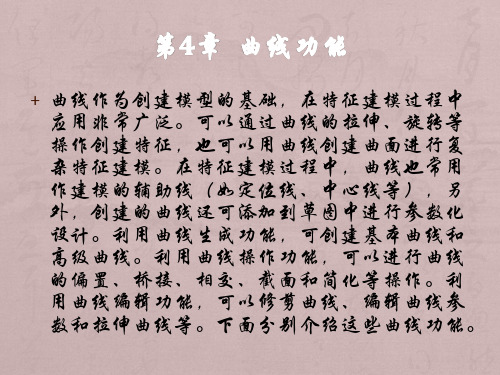 第4章 曲线功能
+ 曲线作为创建模型的基础，在特征建模过程中
应用非常广泛。可以通过曲线的拉伸、旋转等
操作创建特征，也可以用曲线创建曲面进行复
杂特征建模。在特征建模过程中，曲线也常用
作建模的辅助线（如定位线、中心线等），另
外，创建的曲线还可添加到草图中进行参数化
设计。利用曲线生成功能，可创建基本曲线和
高级曲线。利用曲线操作功能，可以进行曲线
的偏置、桥接、相交、截面和简化等操作。利
用曲线编辑功能，可以修剪曲线、编辑曲线参
数和拉伸曲线等。下面分别介绍这些曲线功能。